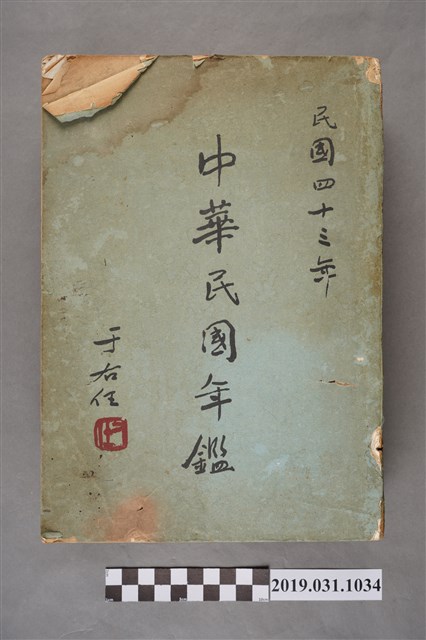 民國四十三年
中華民國年鑑
于右任
2019.031.1034